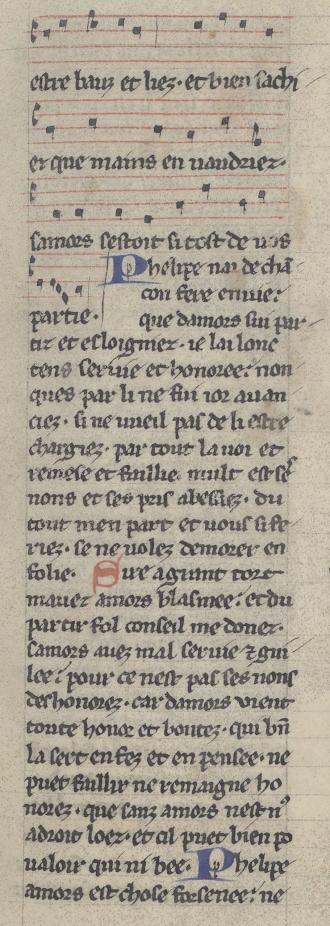 estre bauz et liez · et bien sachi
ez que mains en vaudriez ·
samors sestoit si tost de vos
partie · Phelipe nai de chā
con fere envie :
que damors sui par
tir et esloigniez · ie lai lonc
tens servie et honoree : non
ques par li ne fui ior avan
ciez · si ne vueil pas de li estre
chargiez · par tout la voi et
remese et faillie · mult est
nons et ses pris abessiez · du
tout men part et vous si fe
riez · se ne volez demorer en
folie · Sire a grant tort
mavez amors blasmee : et du
partir fol conseil me donez ·
samors avez mal servie ⁊ gui
lee : pour ce nest pas ses nons
deshonorez · car damors vient
toute honor et bontez · qui bn̄
la sert en fez et en pensee · ne
puet faillir ne remaigne ho
norez · que sanz amors nest nꝰ
adroit loez · et cil puet bien po
valoir qui ni bee · Phelipe
amors est chose forsenee : ne